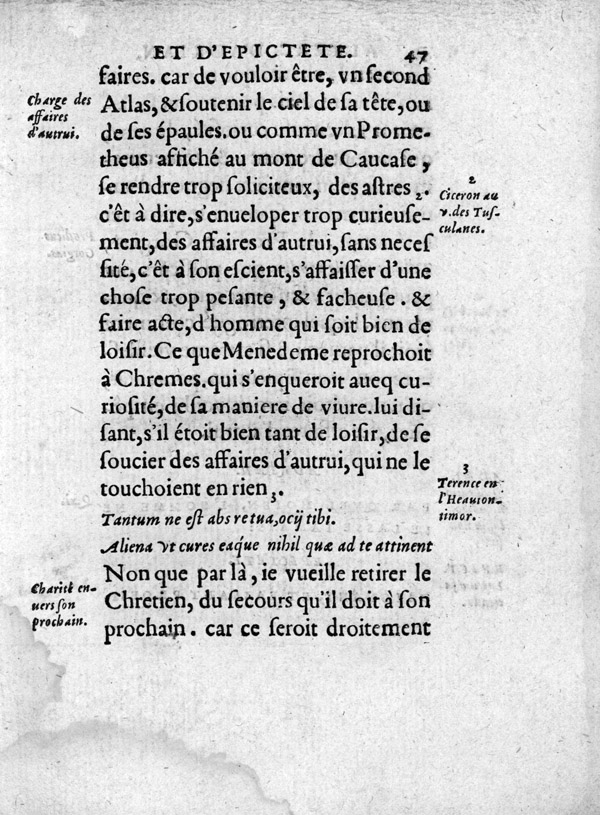 ET D'EPICTETE. 47
faires. car de vouloir être, vn ſecond
Atlas, &ſoutenir le ciel de ſa tête, ou
de ſes épaules. ou comme vn Prome-
theus affiché au mont de Caucaſe,
ſe rendre trop ſoliciteux, des aſtres 2.
c'êt à dire, s'enueloper trop curieuſe-
ment, des affaires d'autrui, ſans neceſ
ſité, c'êt à ſon eſcient, s'affaiſſer d'une
choſe trop peſante, & facheuſe. &
faire acte, d'homme qui ſoit bien de
loiſir. Ce que Menedeme reprochoit
à Chremes. qui s'enqueroit aueq cu-
rioſité, de ſa maniere de viure. lui di-
ſant, s'il étoit bien tant de loiſir, de ſe
ſoucier des affaires d'autrui, qui ne le
touchoient en rien 3.
Tantum ne eſt abs re tua, ocij tibi.
Aliena vt cures eaque nihil quæ ad te attinent
Non que par là, ie vueille retirer le
Chretien, du ſecours qu'il doit à ſon
prochain. car ce ſeroit droitement
Charge des
affaires
d'autrui.
2
Ciceron au
v. des Tuſ-
culanes.
3
Terence en
l'Heauton-
timor.
Charité en-
uers ſon
prochain.